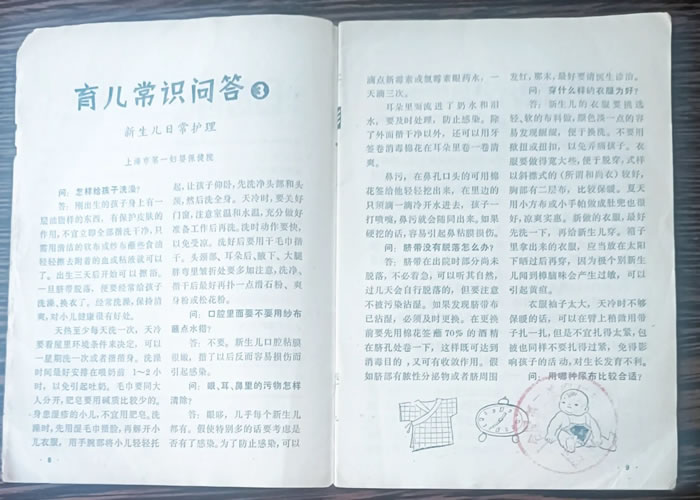 育儿常识问答 3
新生儿日常护理
上海市第一妇婴保健院
问：怎样给孩子洗澡？
答：刚出生的孩子身上有一
层油脂样的东西，有保护皮肤的
作用，不宜立即全部揩去干净，只
需用清洁的软布或纱布蘸些食油
轻轻擦去附着的血或粘液就可以
了。出生三天后开始可以擦浴，
一旦脐带脱落，便要经常给孩子
洗澡、换衣了。经常洗澡，保持清
爽，对小儿健康很有好处。
天热至少每天洗一次，天冷
要看屋里环境条件来决定，可以
一星期洗一次或者揩揩身。洗澡
时间最好安排在喂奶前 1～2小
时，以免引起吐奶。毛巾要同大
人分开，肥皂要用碱质比较少的。
身患湿疹的小儿，不宜用肥皂。洗
澡时，先用湿毛巾擦脸，再解开小
儿衣服，用手腕部将小儿轻轻托
· 8 ·
起，让孩子仰卧，先洗净头部和头
颈，然后洗全身。天冷时，要关好
门窗，注意室温和水温，充分做好
准备工作后再洗，洗时动作要快，
以免受凉。洗好后要用干毛巾揩
干。头颈部、耳朵后、腋下、大腿
胯弯里皱折处要多加注意，洗净、
揩干后最好再扑一点滑石粉、爽
身粉或松花粉。
问：口腔里面要不要用纱布
蘸点水揩？
答：不要。新生儿口腔粘膜
很嫩，揩了以后反而容易损伤而
引起感染。
问：眼、耳、鼻里的污物怎样
清除？
答：眼哆，几乎每个新生儿
都有。假使特别多的话要考虑是
否有了感染。为了防止感染，可以
滴点新霉素或氯霉素眼药水，一
天滴三次。
耳朵里面流进了奶水和泪
水，要及时处理，防止感染。除
了外面揩干净以外，还可以用牙
签卷消毒棉花在耳朵里卷一卷清
爽。
鼻污，在鼻孔口头的可用棉
花签给他轻轻挖出来，在里边的
只须滴一滴冷开水进去，孩子一
打喷嚏，鼻污就会随同出来。如果
硬挖的话，容易引起鼻粘膜损伤。
问：脐带没有脱落怎么办？
答：脐带在出院时部分尚未
脱落，不必着急，可以听其自然，
过几天会自行脱落的，但要注意
不被污染沾湿。如果发现脐带布
已沾湿，必须及时更换。在更换
前要先用棉花签蘸70%的酒精
在脐孔处卷一下，这样既可达到
消毒目的，又可有收敛作用。假
如脐部有脓性分泌物或者脐周围
发红，那末，最好要请医生诊治。
问：穿什么样的衣服为好？
答：新生儿的衣服要挑选
轻、软的布料做，颜色淡一点的容
易发现龌龊，便于换洗。不要用
揿扭或扭扣，以免弄痛孩子。衣
服要做得宽大些，便于脱穿，式样
以斜襟式的（所谓和尚衣）较好，
胸部有二层布，比较保暖。夏天
用小方布或小手帕做成肚兜也很
好，凉爽实惠。新做的衣服，最好
先洗一下，再给新生儿穿。箱子
里拿出来的衣服，应当放在太阳
下晒过后再穿，因为极个别新生
儿闻到樟脑味会产生过敏，可以
引起黄疸。
衣服袖子太大，天冷时不够
保暖的话，可以在臂上稍微用带
子扎一扎，但是不宜扎得太紧，包
被也同样不要扎得过紧，免得影
响孩子的活动，对生长发育不利。
问：用哪种尿布比较合适？
· 9 ·